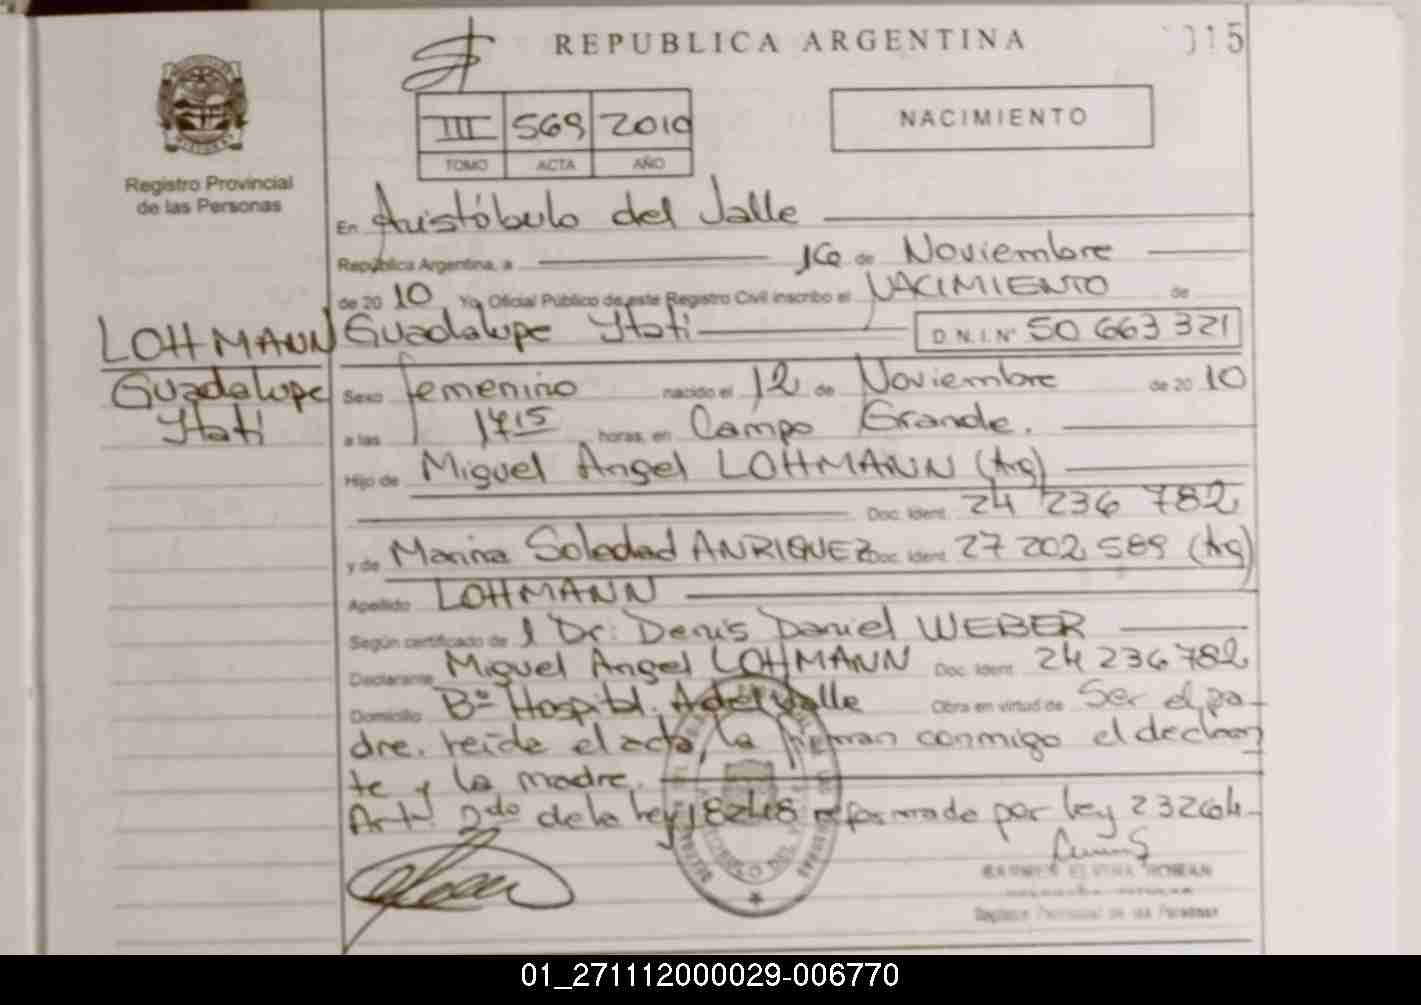 REPUBLICA ARGENTINA
015
III 569 2010
TOMO ACTA AÑO
NACIMIENTO
Registro Provincial
de las Personas
En Aristóbulo del Valle
República Argentina, a 16 de Noviembre
de 20 10 Yo, Oficial Público de este Registro Civil inscribo el NACIMIENTO de
LOHMANN
Guadalupe
Itatí
Guadalupe Itati D.N.I.Nº 50 663 321
Sexo femenino nacido el 12 de Noviembre de 20 10
a las 1715 horas, en Campo Grande.
Hijo de Miguel Angel LOHMANN (Arg)
Doc. Ident. 24 236 782
y de Marina Soledad ANRIQUEZ Doc. Ident. 27 202 589 (Arg)
Apellido LOHMANN
Según certificado de l Dr: Denis Daniel WEBER
Declarante Miguel Angel LOHMANN Doc. Ident. 24 236 782
Domicilio Bº Hospital. A del Valle Obra en virtud de Ser el pa-
dre. leída el acta, la firman conmigo el declaran
te y la madre.
Art. 2do de la ley 18248 reformado por ley 23264-
Registro Provincial de las Personas
01_271112000029-006770